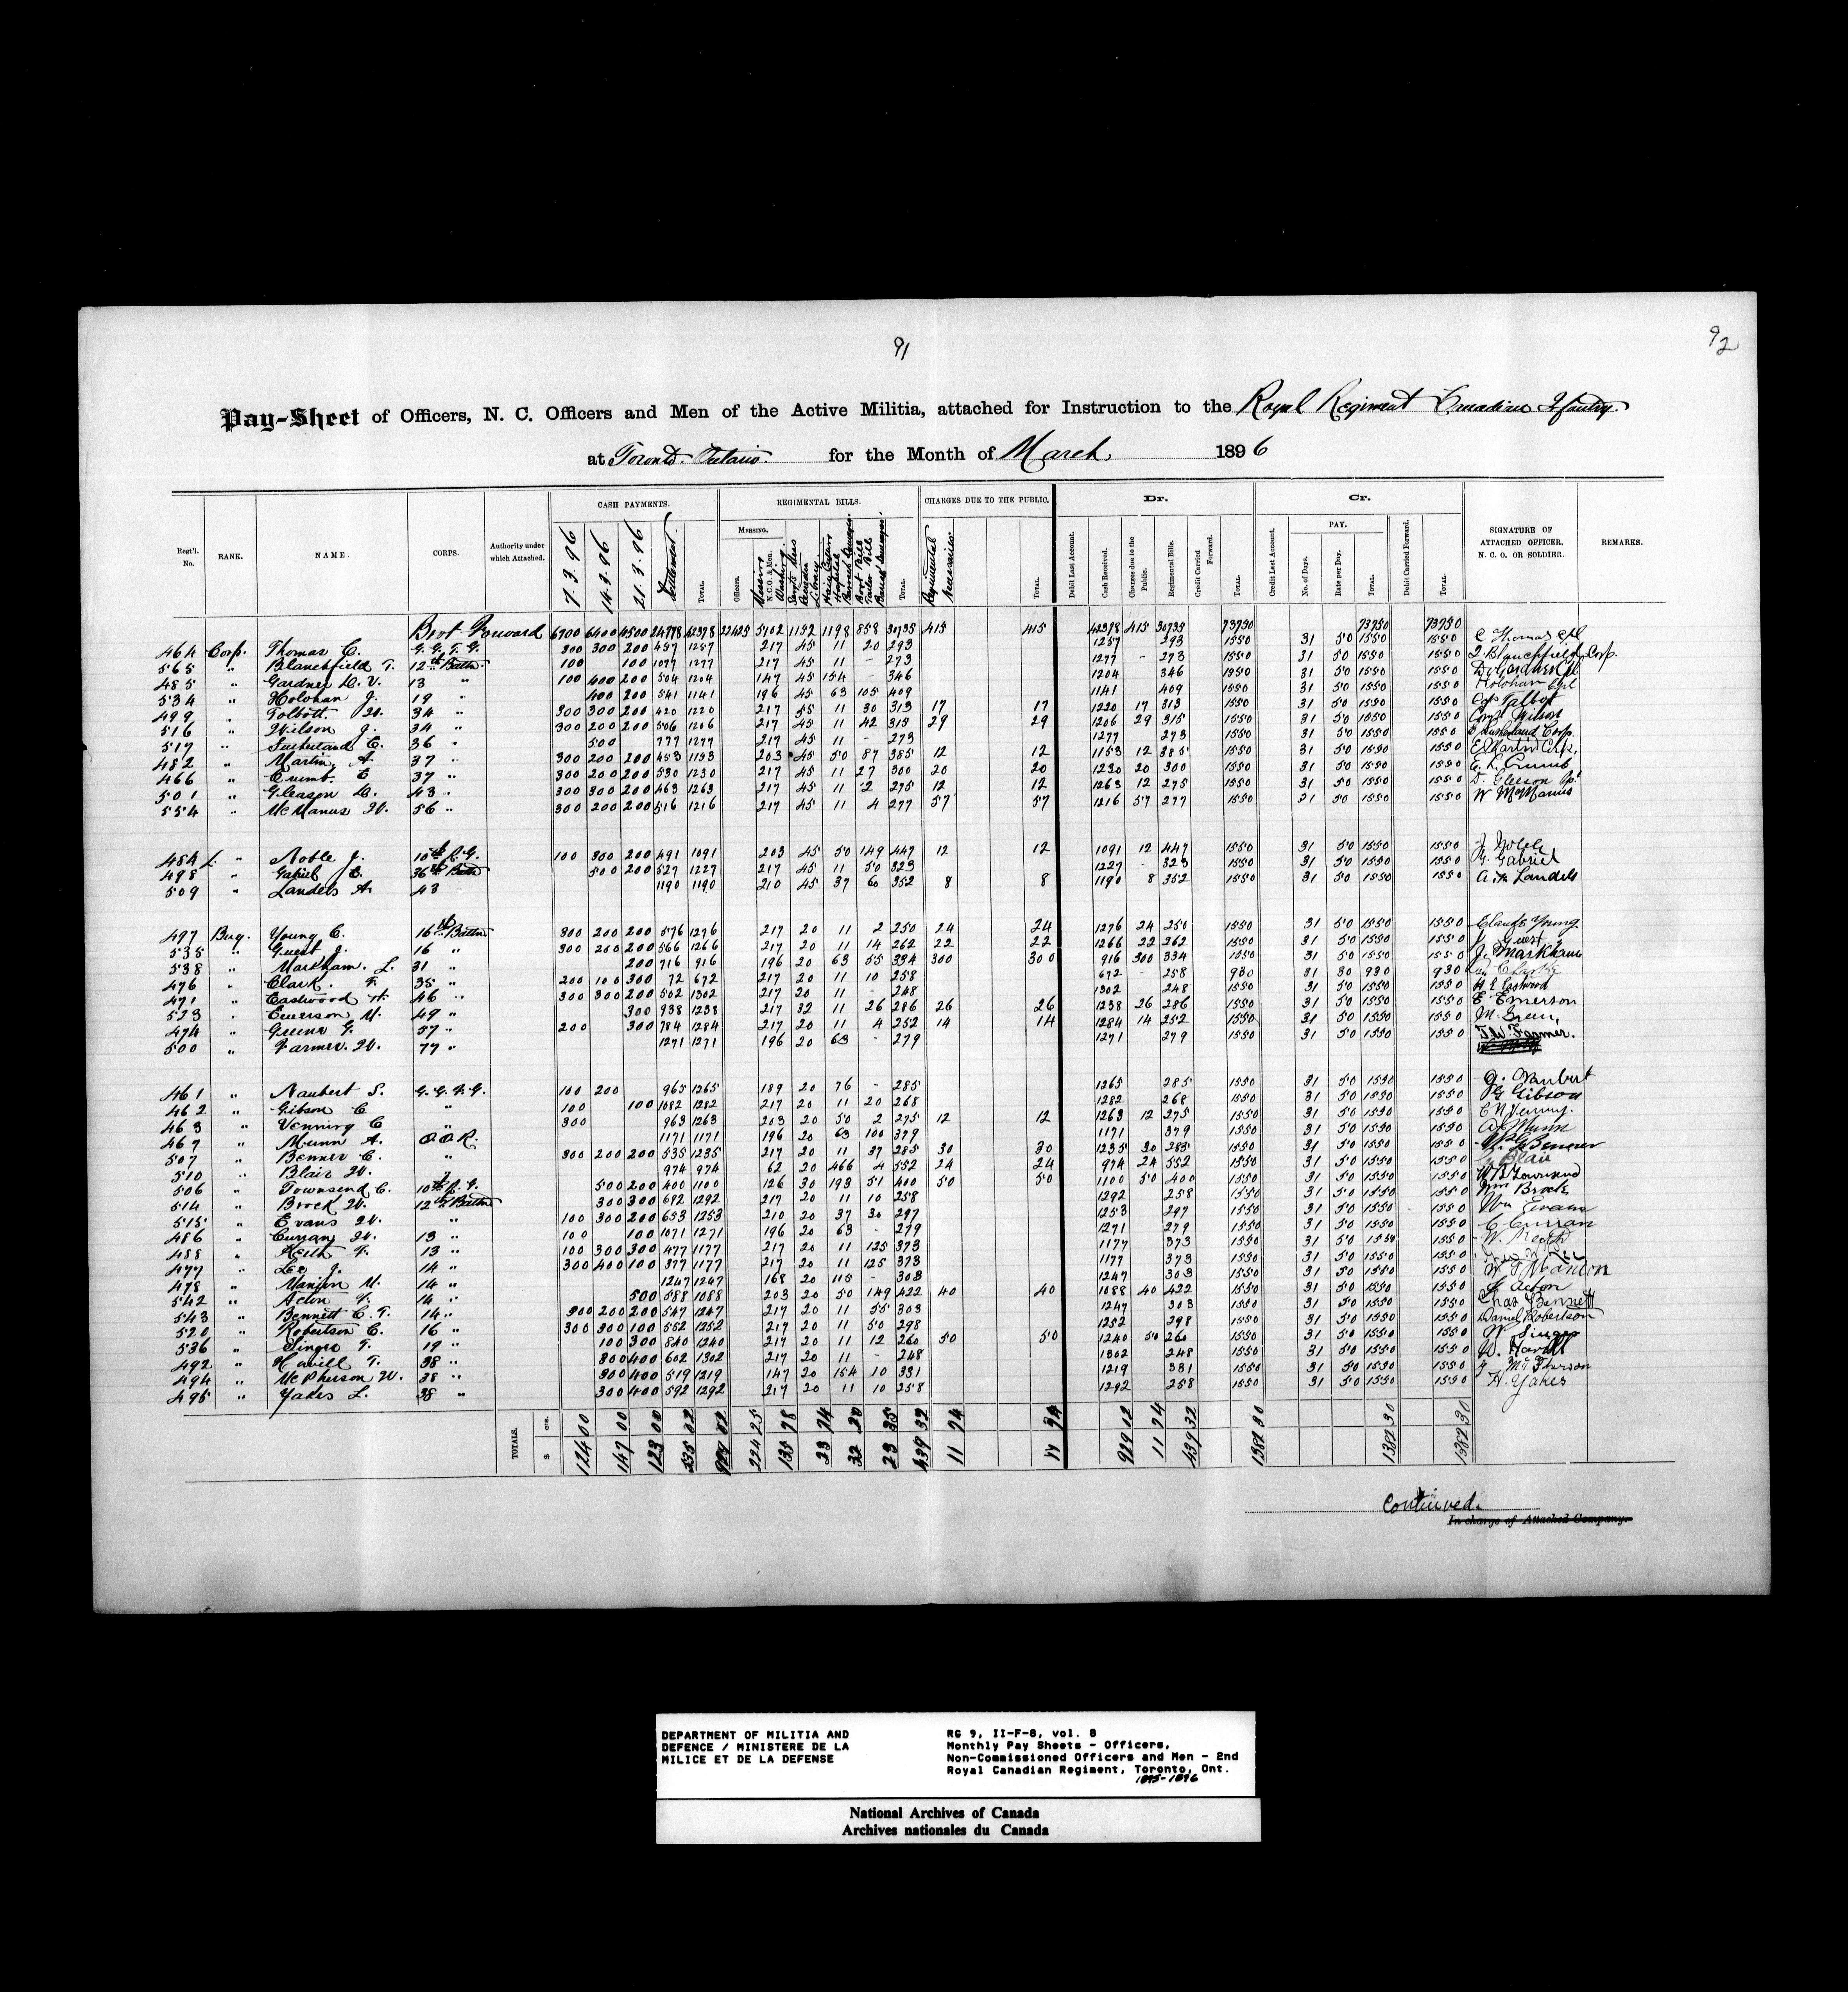 91
92
Pay-Sheet of Officers, N. C. Officers and Men of the Active Militia, attached for Instruction to the Royal Regiment Canadian Infantry.
at Toronto Ontario. for the Month of March 1896
Regt'l. No. RANK. NAME. CORPS. Authority under which Attached. CASH PAYMENTS. REGIMENTAL BILLS. CHARGES DUE TO THE PUBLIC. Dr. Cr. SIGNATURE OF ATTACHED OFFICER, N. C. O. OR SOLDIER. REMARKS.
7.3.96 14.3.96 21.3.96 Settlement. TOTAL. MESSING. Officers. Messing N.C.O. & Men. Washing Library Hospital Boot Bill Tailor Bill TOTAL. Regimental Necessaries TOTAL. Debit Last Account. Cash Received. Charges due to the Public. Regimental Bills. Credit Carried Forward. TOTAL. Credit Last Account. PAY. No. of Days. Rate per Day. TOTAL. Debit Carried Forward. TOTAL.
Brot Forward 6700 6400 4500 24778 42378 22425 5702 1152 1198 858 30735 415 415 42378 415 30735 73750 73750 73750
464 Corp. Thomas C. G.G.F.G. 300 300 200 457 1257 217 45 11 20 293 1257 293 1550 31 50 1550 1550 C Thomas Cpl
565 " Blanchfield T. 12th Battn. 100 100 1077 1277 217 45 11 - 273 1277 - 273 1550 31 50 1550 1550 T Blanchfield Corp.
485 " Gardner D. V. 13 " 100 400 200 504 1204 147 45 154 - 346 1204 346 1550 31 50 1550 1550 D V Gardner Cpl
534 " Holohan J. 19 " 400 200 541 1141 196 45 63 105 409 1141 409 1550 31 50 1550 1550 Holohan Cpl
499 " Tolbott. W. 34 " 300 300 200 420 1220 217 55 11 30 313 17 17 1220 17 313 1550 31 50 1550 1550 Cop Talbot
516 " Wilson J. 34 " 300 200 200 506 1206 217 45 11 42 315 29 29 1206 29 315 1550 31 50 1550 1550 Corp Wilson
517 " Sutherland E. 36 " 500 777 1277 217 45 11 - 273 1277 273 1550 31 50 1550 1550 E Sutherland Corp.
482 " Martin A. 37 " 300 200 200 453 1153 203 45 50 87 385 12 12 1153 12 385 1550 31 50 1550 1550 E A Martin Clp.
466 " Crumb. E 37 " 300 200 200 530 1230 217 45 11 27 300 20 20 1230 20 300 1550 31 50 1550 1550 E. L. Crumb
501 " Gleason D. 43 " 300 300 200 463 1263 217 45 11 2 275 12 12 1263 12 275 1550 31 50 1550 1550 D. Gleeson Cpl
554 " McManus W. 56 " 300 200 200 516 1216 217 45 11 4 277 57 57 1216 57 277 1550 31 50 1550 1550 W McManus
484 L. " Noble J. 10th R.G. 100 300 200 491 1091 203 45 50 149 447 12 12 1091 12 447 1550 31 50 1550 1550 J Noble
498 " Gabriel G. 36th Battn 500 200 527 1227 217 45 11 50 323 1227 - 323 1550 31 50 1550 1550 G. Gabriel
509 " Landels A. 43 1190 1190 210 45 37 60 352 8 8 1190 8 352 1550 31 50 1550 1550 A. Landels
497 Bug. Young C. 16th Battn 300 200 200 576 1276 217 20 11 2 250 24 24 1276 24 250 1550 31 50 1550 1550 Claude Young
535 " Guest J. 16 " 300 200 200 566 1266 217 20 11 14 262 22 22 1266 22 262 1550 31 50 1550 1550 J Guest
538 " Markham. L. 31 " 200 716 916 196 20 63 55 334 300 300 916 300 334 1550 31 50 1550 1550 J. Markham
476 " Clark. F. 35 " 200 100 300 72 672 217 20 11 10 258 672 - 258 930 31 30 930 930 Clark
471 " Eastwood H. 46 " 300 300 200 502 1302 217 20 11 - 248 1302 248 1550 31 50 1550 1550 H E Eastwood
523 " Emerson M. 49 " 300 938 1238 217 32 11 26 286 26 26 1238 26 286 1550 31 50 1550 1550 E Emerson
474 " Greene G. 57 " 200 300 784 1284 217 20 11 4 252 14 14 1284 14 252 1550 31 50 1550 1550 M. Green
500 " Farmer. W. 77 " 1271 1271 196 20 63 - 279 1271 279 1550 31 50 1550 1550 T W Farmer.
461 " Naubert S. G.G.F.G. 100 200 965 1265 189 20 76 - 285 1265 285 1550 31 50 1550 1550 G. Naubert
462 " Gibson C " 100 100 1082 1282 217 20 11 20 268 1282 268 1550 31 50 1550 1550 G Gibson
463 " Venning C " 300 963 1263 203 20 50 2 275 12 12 1263 12 275 1550 31 50 1550 1550 C Venning.
467 " Munn A. Q.O.R. 1171 1171 196 20 63 100 379 1171 379 1550 31 50 1550 1550 A Munn
507 " Benner C. " 300 200 200 535 1235 217 20 11 37 285 30 30 1235 30 285 1550 31 50 1550 1550 Benner
510 " Blair W. " 974 974 62 20 466 4 552 24 24 974 24 552 1550 31 50 1550 1550 Blair
506 " Townsend C. 10th R.G. 500 200 400 1100 126 30 193 51 400 50 50 1100 50 400 1550 31 50 1550 1550 W B Townsend
514 " Brock W. 12th Battn 300 300 692 1292 217 20 11 10 258 1292 258 1550 31 50 1550 1550 Wm Brock
515 " Evans W. " 100 300 200 653 1253 210 20 37 30 297 1253 297 1550 31 50 1550 1550 Wm Evans
486 " Curran W. 13 " 100 100 1071 1271 196 20 63 - 279 1271 279 1550 31 50 1550 1550 C Curran
488 " Keith F. 13 " 100 300 300 477 1177 217 20 11 125 373 1177 373 1550 31 50 1550 1550 W. Keith
477 " Lee J. 14 " 300 400 100 377 1177 217 20 11 125 373 1177 373 1550 31 50 1550 1550 Lee
478 " Manion M. 14 " 1247 1247 168 20 115 - 303 1247 303 1550 31 50 1550 1550 Manion
542 " Acton F. 14 " 500 588 1088 203 20 50 149 422 40 40 1088 40 422 1550 31 50 1550 1550 Acton
543 " Bennett C. F. 14 " 300 200 200 547 1247 217 20 11 55 303 1247 303 1550 31 50 1550 1550 Chas Bennett
520 " Robertson C. 16 " 300 300 100 552 1252 217 20 11 50 298 1252 298 1550 31 50 1550 1550 Daniel Robertson
536 " Singer T. 19 " 100 300 840 1240 217 20 11 12 260 50 50 1240 50 260 1550 31 50 1550 1550 W Singer
492 " Havill T. 38 " 300 400 602 1302 217 20 11 - 248 1302 248 1550 31 50 1550 1550 Havill
494 " McPherson W. 38 " 300 400 519 1219 147 20 154 10 331 1219 331 1550 31 50 1550 1550 J McPherson
495 " Yakes L. 38 " 300 400 592 1292 217 20 11 10 258 1292 258 1550 31 50 1550 1550 H. Yakes
TOTALS. $ cts. 124 00 147 00 123 00 02 929 02 224 25 135 78 23 74 32 20 23 35 439 32 11 94 11 94 929 02 11 94 439 32 1382 30 1382 30 1382 30
Continued.
In charge of Attached Company.
DEPARTMENT OF MILITIA AND
DEFENCE / MINISTERE DE LA
MILICE ET DE LA DEFENSE
RG 9, II-F-8, vol. 8
Monthly Pay Sheets - Officers,
Non-Commissioned Officers and Men - 2nd
Royal Canadian Regiment, Toronto, Ont.
1895-1896
National Archives of Canada
Archives nationales du Canada